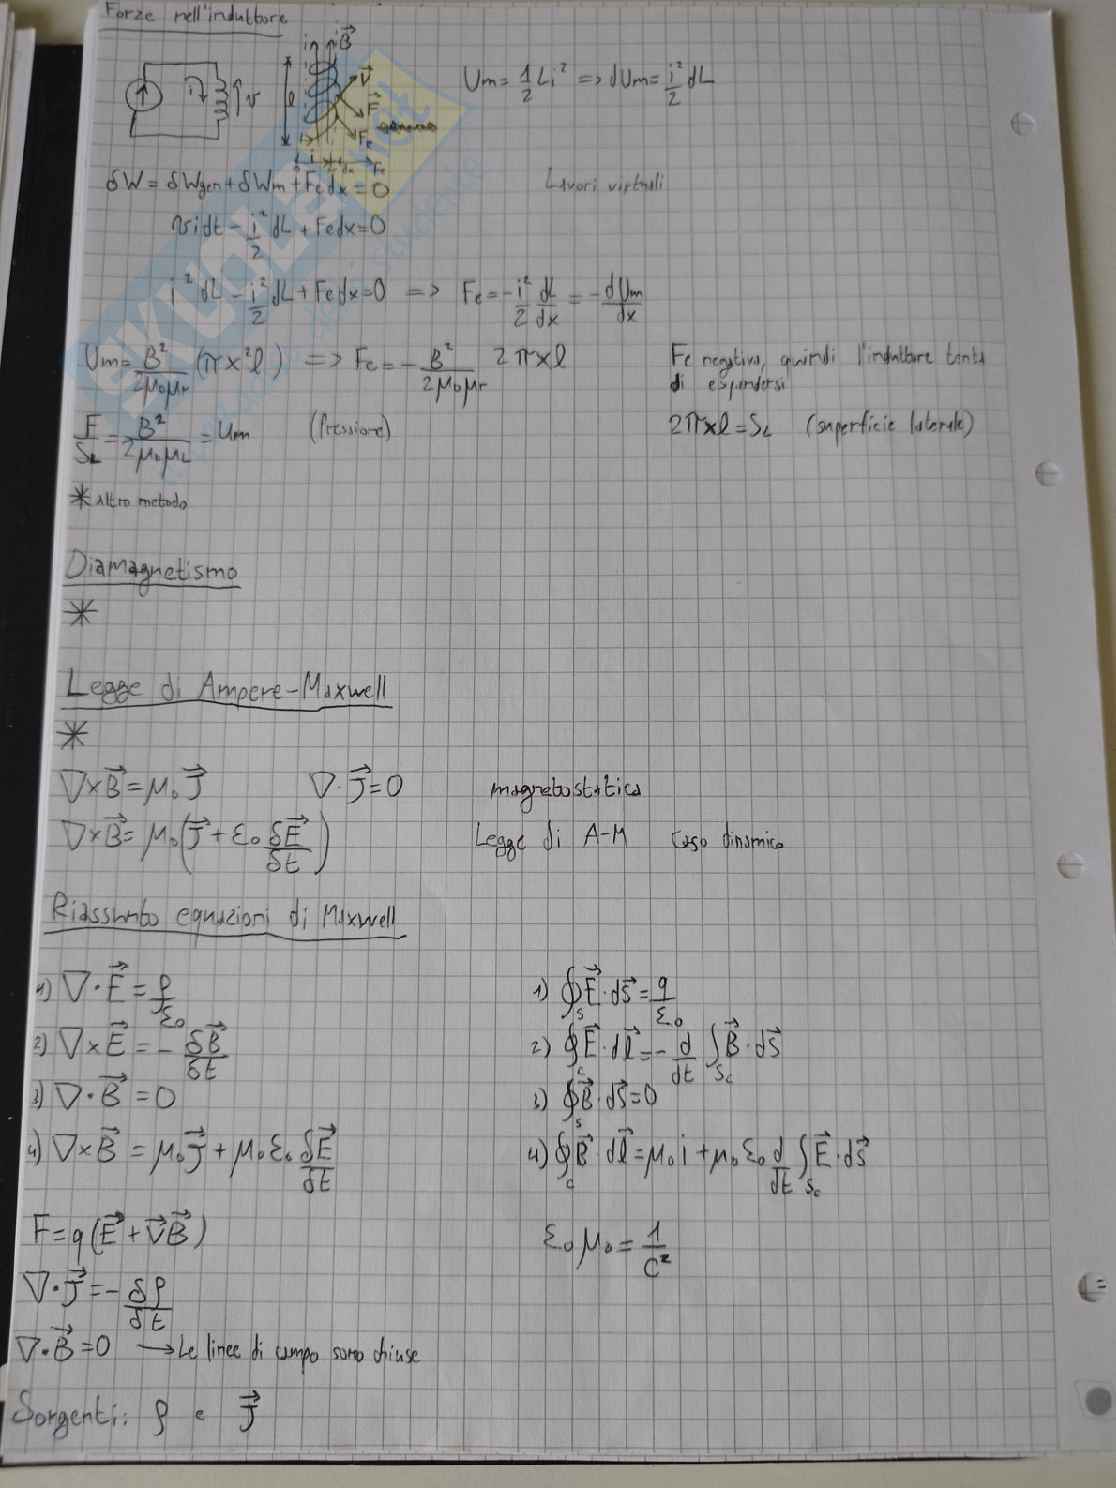 Forze nell'induttore
i B⃗
l
i v
V⃗
F⃗
Fe
Um = 1/2 Li² => dUm = i²/2 dL
δW = δWgen + δWm + Fe dx = 0 Lavori virtuali
vidt - i²/2 dL + Fedx = 0
i² dL - i²/2 dL + Fe dx = 0 => Fe = - i²/2 dL/dx = - dUm/dx
Um = B²/2μ₀μr (πx²l) => Fe = - B²/2μ₀μr 2πxl Fe negativa, quindi l'induttore tenta
di espandersi
F/SL = B²/2μ₀μr = um (Pressione) 2πxl = SL (superficie laterale)
* Altro metodo
Diamagnetismo
*
Legge di Ampere-Maxwell
*
∇×B⃗ = μ₀ J⃗ ∇·J⃗ = 0 magnetostatica
∇×B⃗ = μ₀(J⃗ + ε₀ δE⃗/δt) Legge di A-M caso dinamico
Riassunto equazioni di Maxwell
1) ∇·E⃗ = ρ/ε₀ 1) ∮s E⃗·ds⃗ = q/ε₀
2) ∇×E⃗ = - δB⃗/δt 2) ∮c E⃗·dl⃗ = - d/dt ∫Sc B⃗·ds⃗
3) ∇·B⃗ = 0 3) ∮s B⃗·ds⃗ = 0
4) ∇×B⃗ = μ₀J⃗ + μ₀ε₀ δE⃗/δt 4) ∮c B⃗·dl⃗ = μ₀i + μ₀ε₀ d/dt ∫Sc E⃗·ds⃗
F = q(E⃗ + V⃗B⃗) ε₀μ₀ = 1/c²
∇·J⃗ = - δρ/δt
∇·B⃗ = 0 → Le linee di campo sono chiuse
Sorgenti: ρ e J⃗